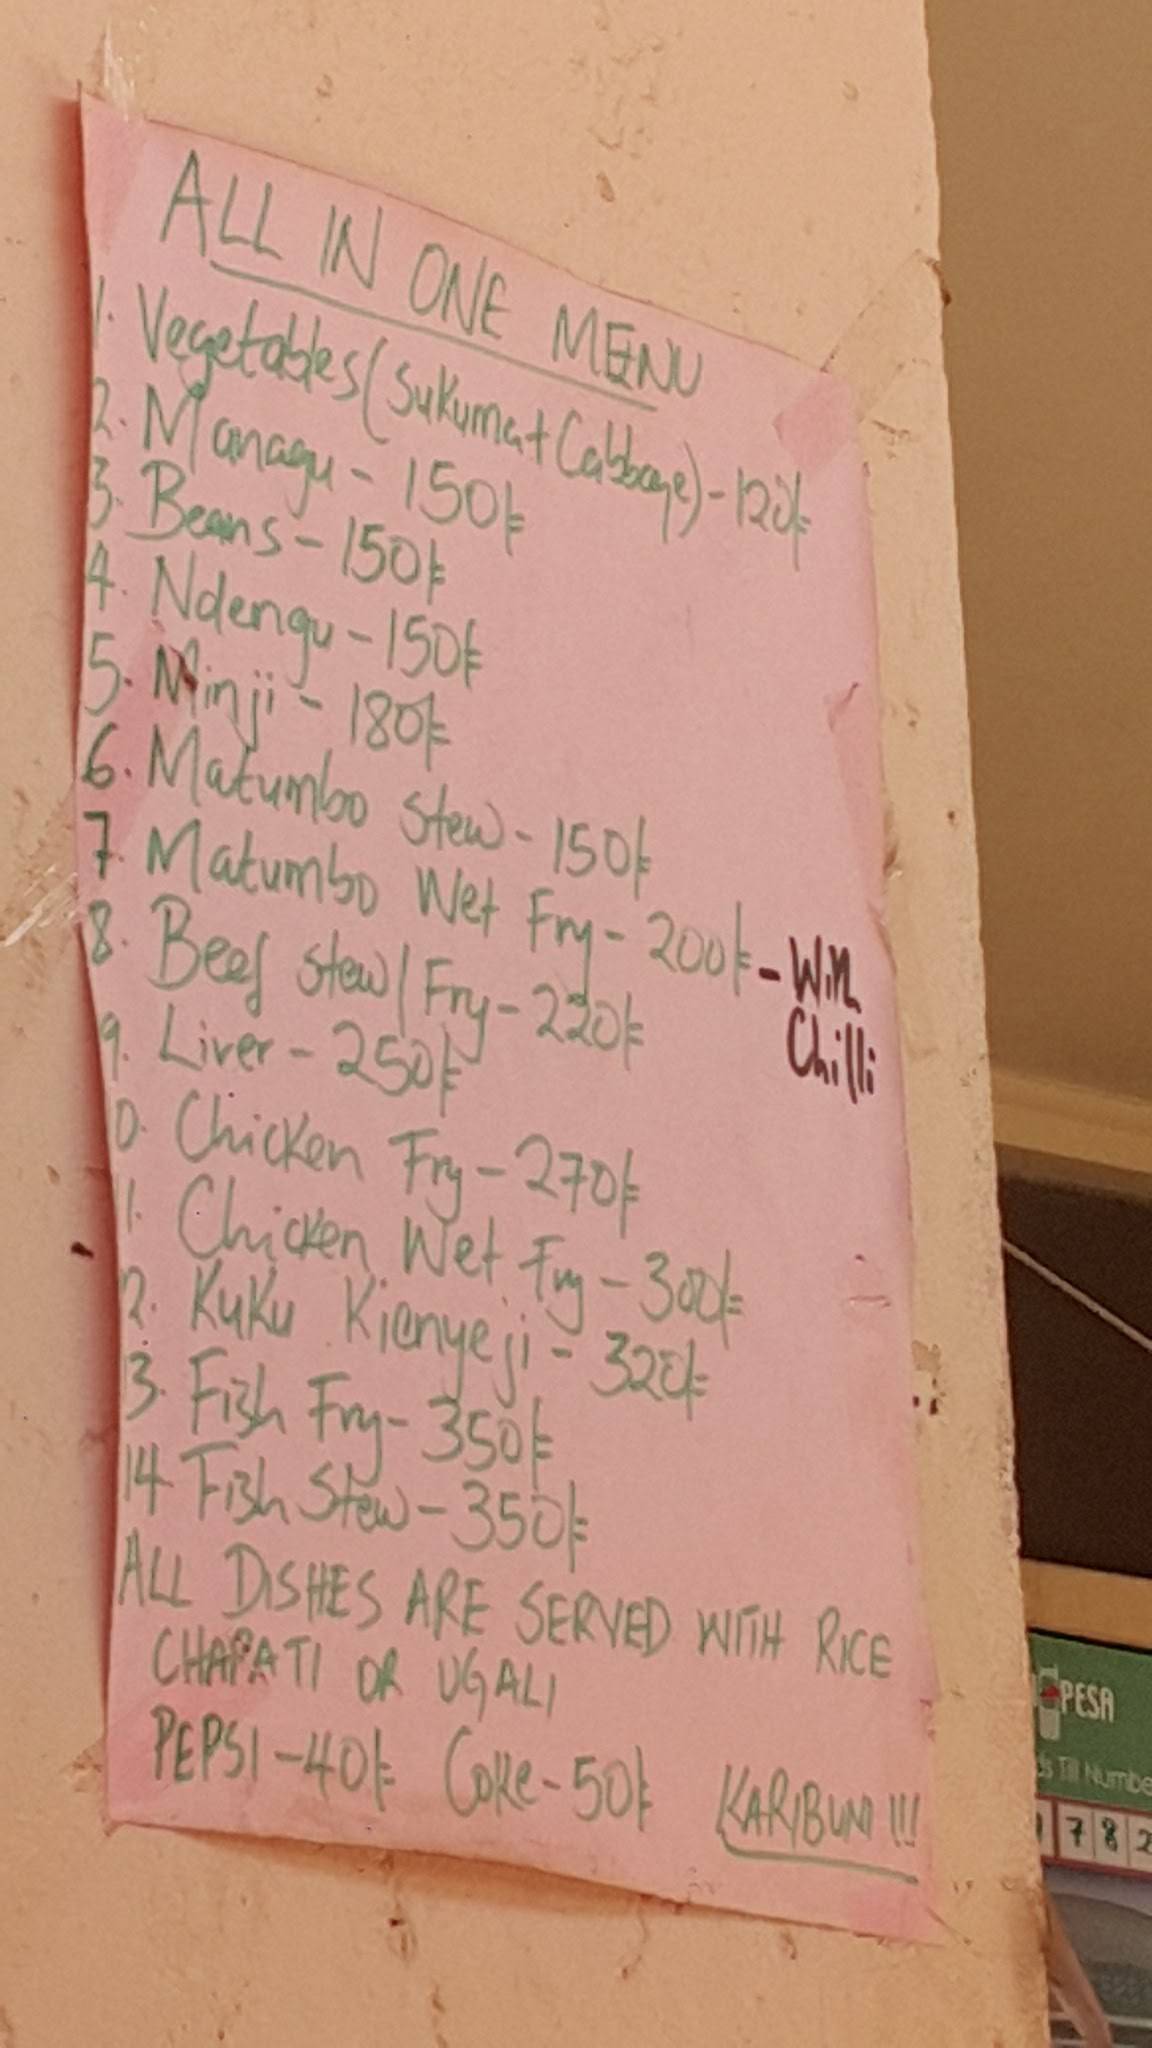 ALL IN ONE MENU
1. Vegetables (Sukuma + Cabbage) - 120/=
2. Managu - 150/=
3. Beans - 150/=
4. Ndengu - 150/=
5. Minji - 180/=
6. Matumbo Stew - 150/=
7 Matumbo Wet Fry - 200/= - With Chilli
8. Beef stew/Fry - 220/=
9. Liver - 250/=
0. Chicken Fry - 270/=
1. Chicken Wet Fry - 300/=
2. Kuku Kienyeji - 320/=
3. Fish Fry - 350/=
14 Fish Stew - 350/=
ALL DISHES ARE SERVED WITH RICE
CHAPATI OR UGALI
PEPSI - 40/= Coke - 50/= KARIBUNI !!!
PESA
Till Numbe
7 8 2